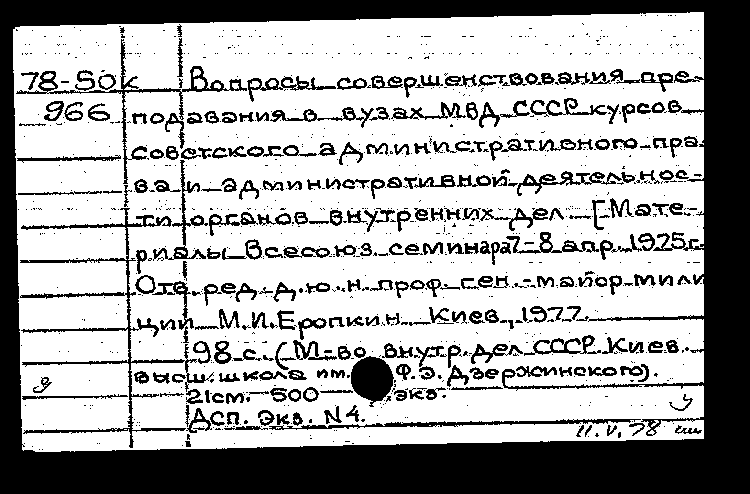 78-50к Вопросы совершенствования пре-
966 подавания в вузах МВД СССР курсов
советского административного пра-
ва и административной деятельнос-
ти органов внутренних дел. [Мате-
риалы Всесоюз. семинара 7-8 апр. 1975г.
Отв. ред. д.ю.н. проф. ген.-майор мили
ции М.И.Еропкин. Киев, 1977.
98 с. (М-во внутр. дел СССР. Киев.
высш. школа им. Ф.Э. Дзержинского).
21см. 500 экз.
ДСП. Экз. N4.
11.V.78